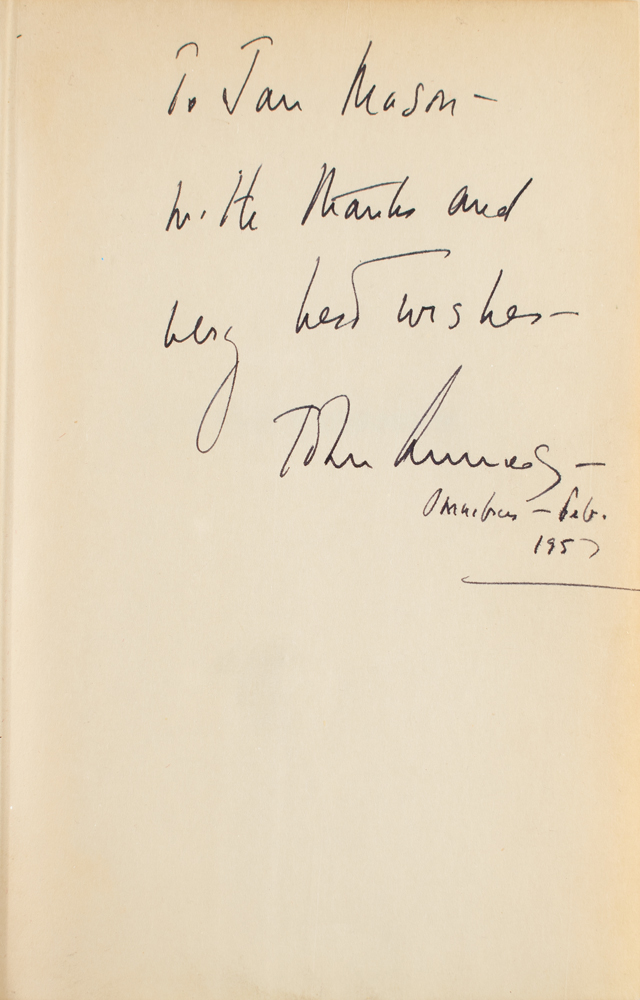 To Jan Mason -
with thanks and
very best wishes -
John Kennedy -
Omnibus - Feb.
1957